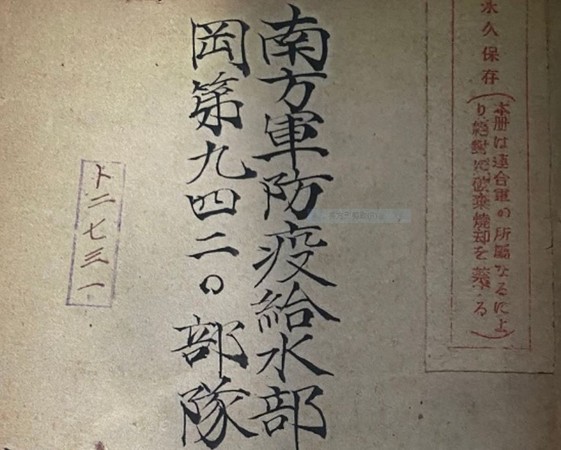 永久保存
(本冊は連合軍の所属なるによ
り絶対に破棄焼却を禁ずる)
南方軍防疫給水部
岡第九四二〇部隊
ト二七三一